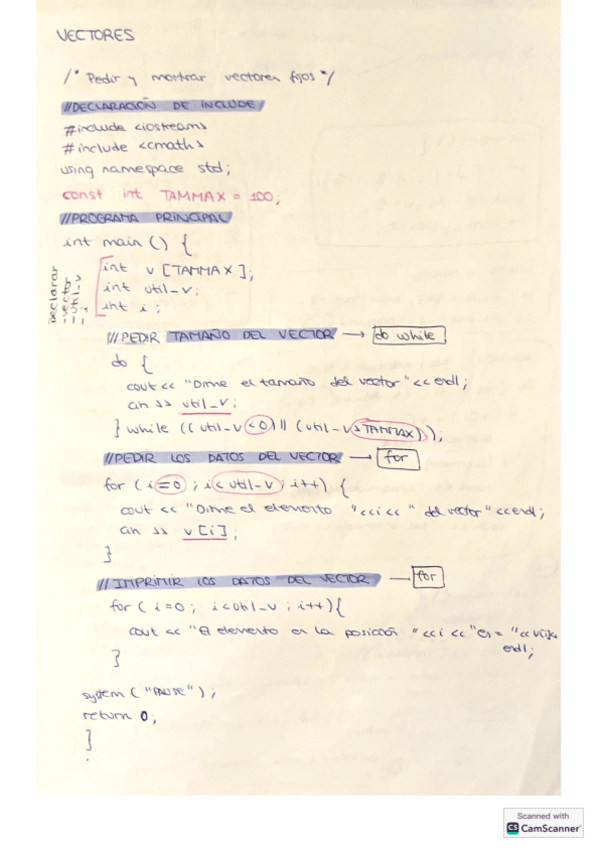 VECTORES
/* Pedir y mostrar vectores fijos */
//DECLARACIÓN DE INCLUDE
#include <iostream>
#include <cmath>
using namespace std;
const int TAMMAX = 100;
//PROGRAMA PRINCIPAL
int main () {
Declarar
-vector
-util-v
- i
int v [TAMMAX];
int util-v;
int i;
//PEDIR TAMAÑO DEL VECTOR → do while
do {
cout << "Dime el tamaño del vector" << endl;
cin >> util-v;
} while ((util-v <0) || (util-v > TAMMAX));
//PEDIR LOS DATOS DEL VECTOR → for
for (i=0; i< util-v; i++) {
cout << "Dime el elemento "<<i<<" del vector"<<endl;
cin >> v[i];
}
//IMPRIMIR LOS DATOS DEL VECTOR → for
for (i=0; i<util-v; i++){
cout << "El elemento en la posición "<<i<<"es= "<<v[i]<<
endl;
}
system ("PAUSE");
return 0;
}
Scanned with
CS CamScanner